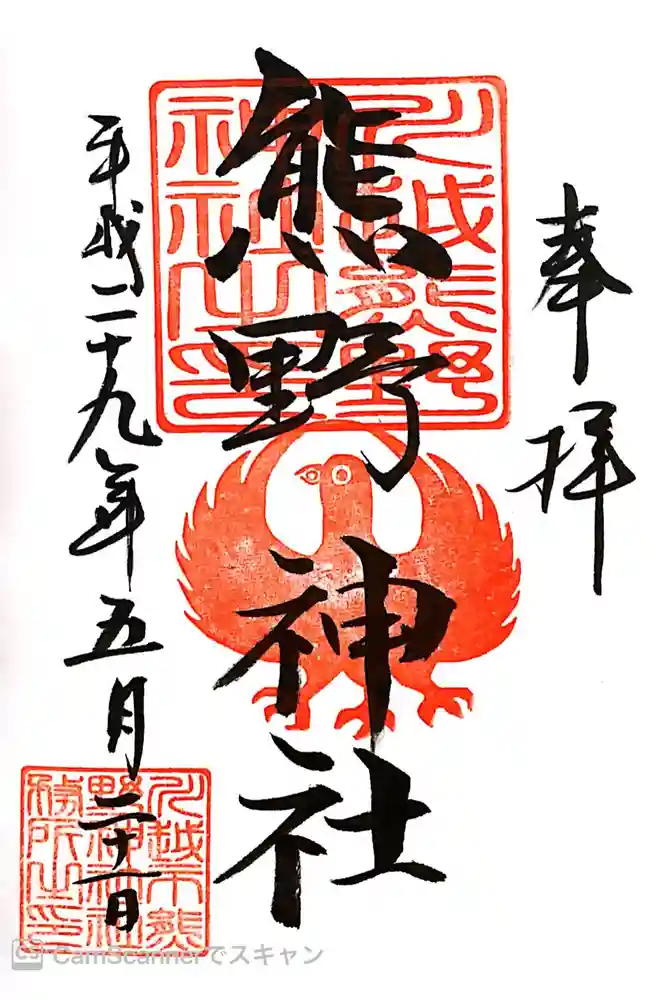 奉拝
熊野神社
平成二十九年五月二十一日
川越熊野
神社之印
川越市熊
野神社社
務所之印
CS CamScannerでスキャン